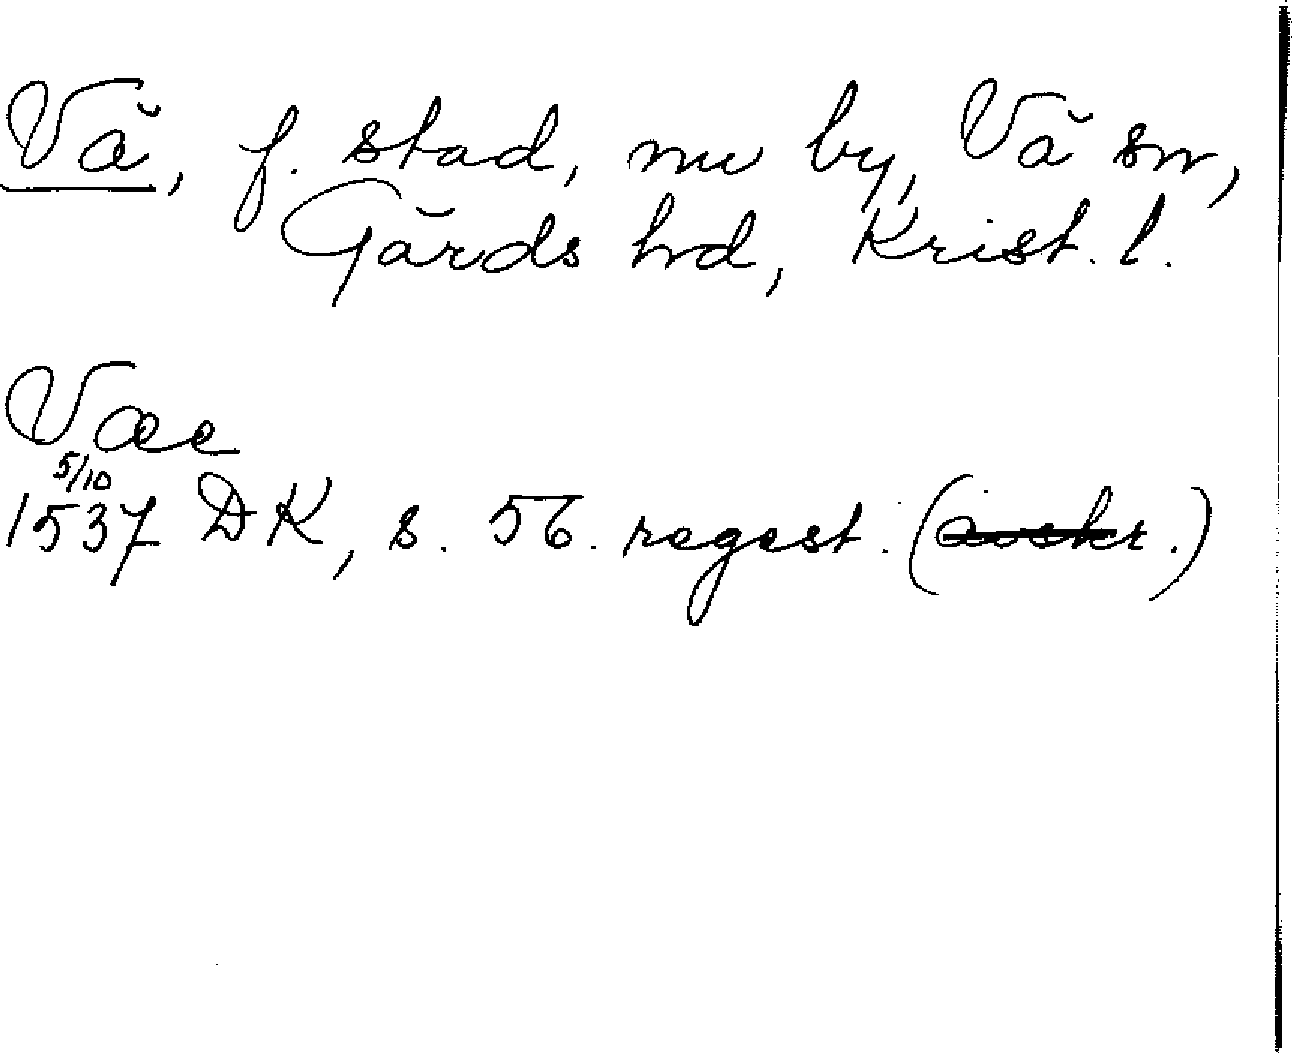 Vä, f. stad, nu by, Vä sn,
Gärds hd, Krist. l.
Væe
5/10
1537 DK, s. 56. regest. (avskr.)